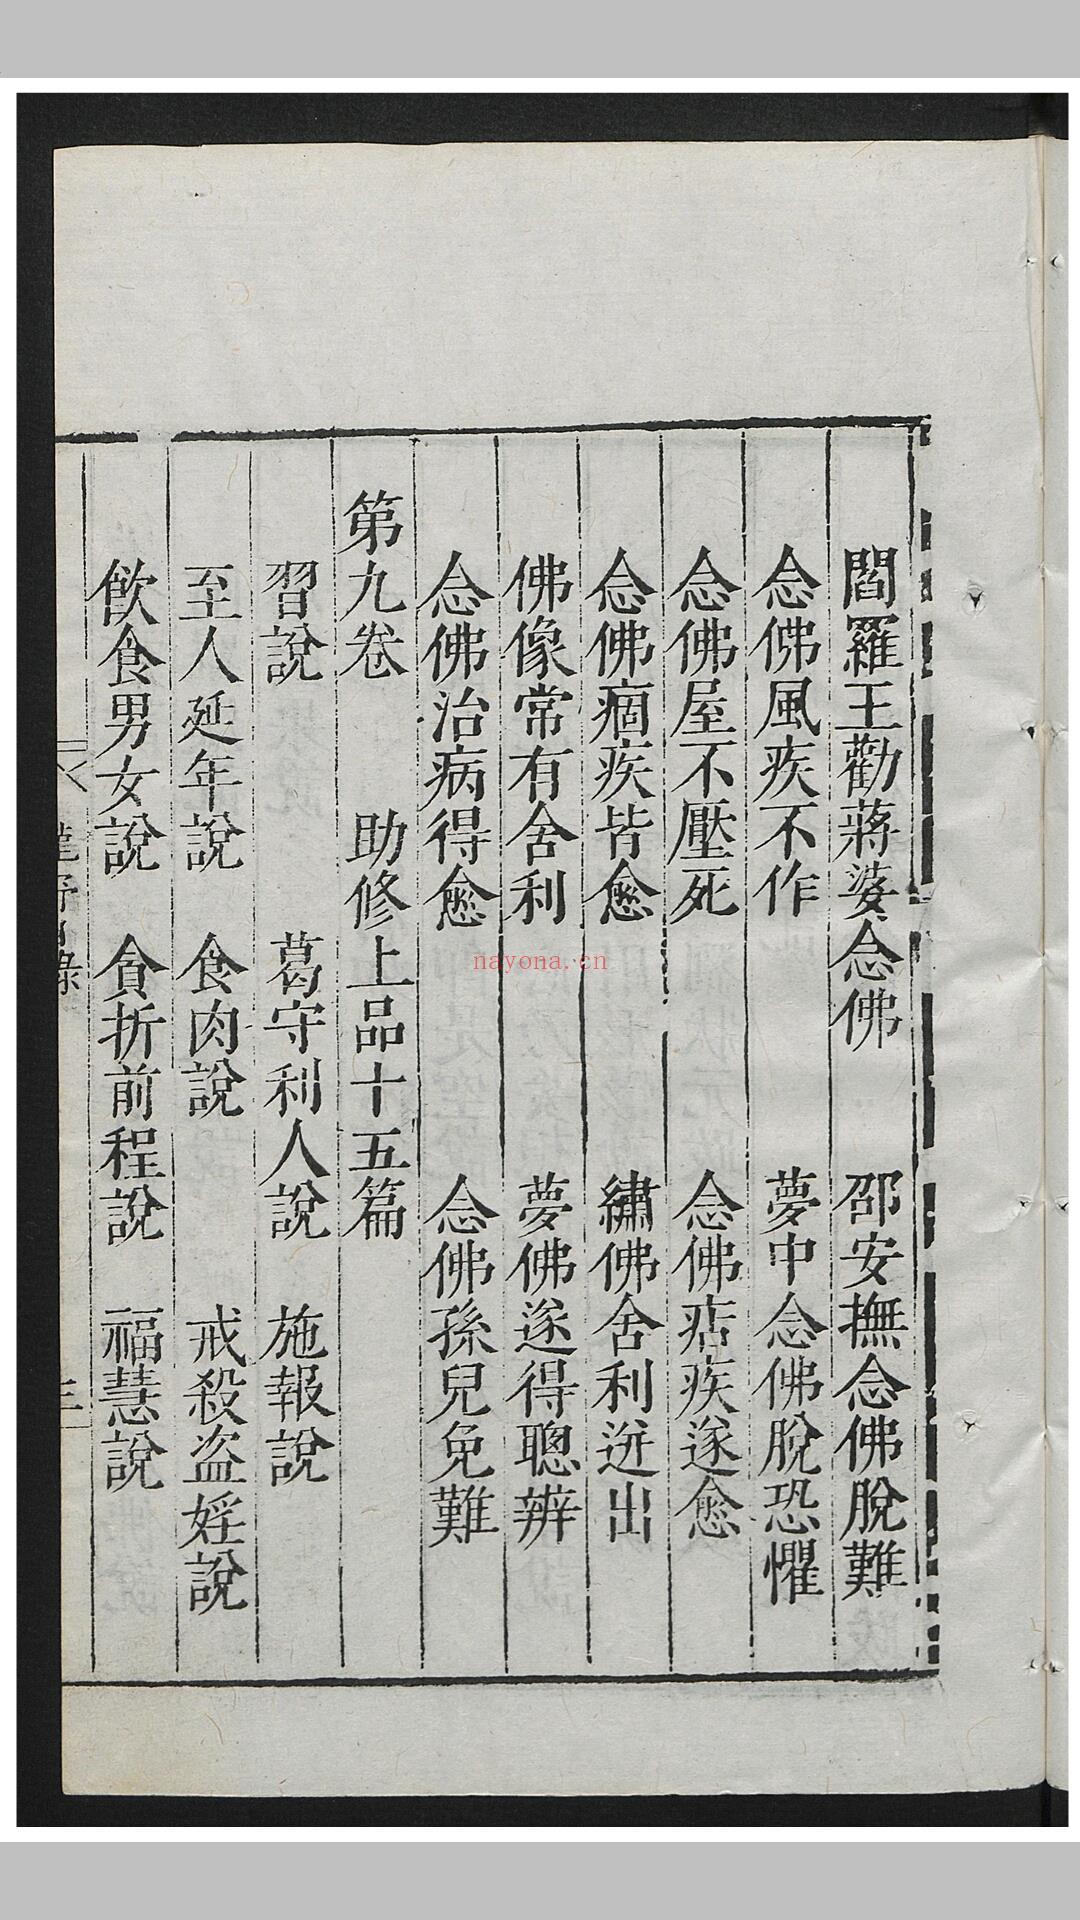 閻羅王勸蔣婆念佛　邵安撫念佛脫難
念佛風疾不作　夢中念佛脫恐懼
念佛屋不壓死　念佛痁疾遂愈
念佛痼疾皆愈　繡佛舍利迸出
佛像常有舍利　夢佛遂得聰辨
念佛治病得愈　念佛孫兒免難
第九卷　助修上品十五篇
習說　葛守利人說　施報說
至人延年說　食肉說　戒殺盗婬說
飲食男女說　貪折前程說　福慧說
三
nayona.cn